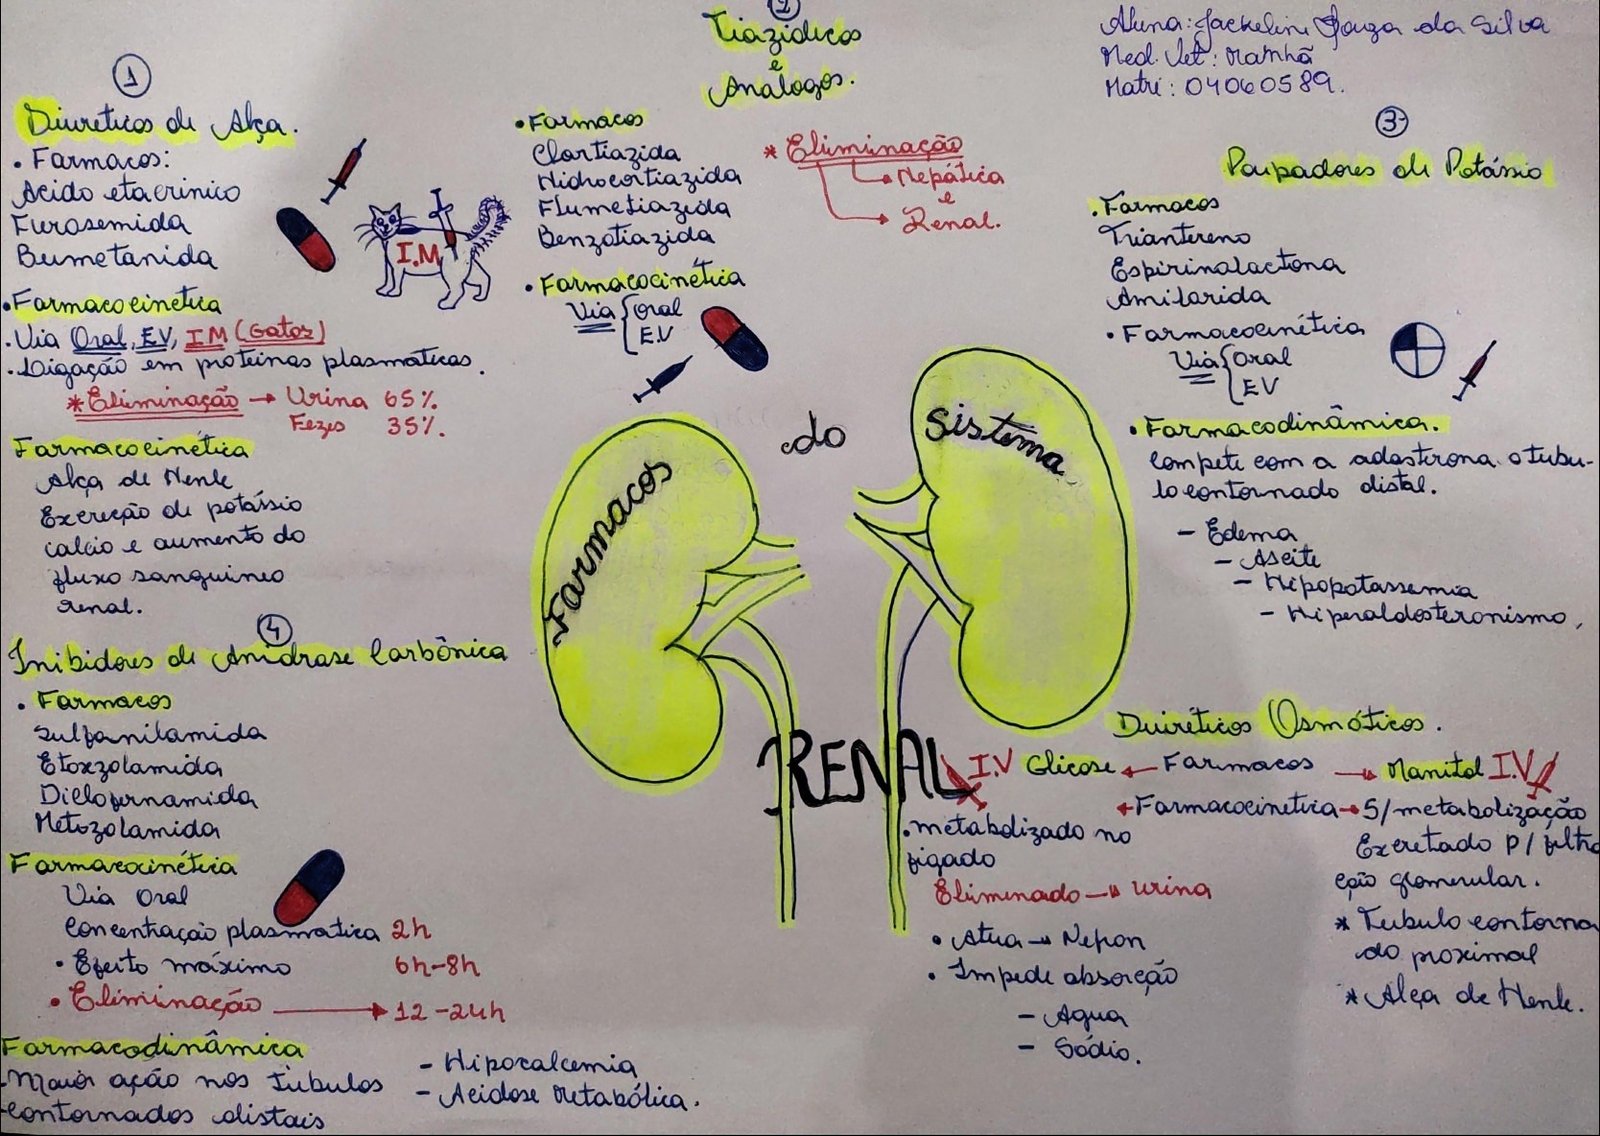 Aluna: Jackelini Souza da Silva
Med. Vet: Manhã
Matri: 04060589.
1
Diureticos de Alça.
• Farmacos:
Acido etacrinico
Furosemida
Bumetanida
I.M
• Farmacocinetica
• Via Oral, EV, IM (Gatos)
• Ligação em proteinas plasmaticas.
* Eliminação → Urina 65%
Fezes 35%.
Farmacocinética
Alça de Henle
Excreção de potássio
calcio e aumento do
fluxo sanguineo
renal.
2
Tiazidicos
e
Análogos.
• Farmacos
Clortiazida
Hidrocortiazida
Flumetiazida
Benzotiazida
* Eliminação
→ Hepática
e
→ Renal.
• Farmacocinética
Via { Oral
E.V
3
Poupadores de Potássio
• Farmacos
Triantereno
Espirinalactona
Amilorida
• Farmacocinética
Via { Oral
EV
• Farmacodinâmica.
Compete com a adosterona o tubu-
lo contornado distal.
- Edema
- Aseite
- Hipopotassemia
- Hiperaldosteronismo,
Farmacos
do
Sistema
RENAL
4
Inibidores de Anidrase Carbônica
• Farmacos
Sulfanilamida
Etoxzolamida
Diclofernamida
Metozolamida
Farmacocinética
Via Oral
Concentração plasmatica 2h
• Efeito máximo 6h-8h
• Eliminação → 12-24h
Farmacodinâmica
- Maior ação nos túbulos
- contornados distais
- Hipocalcemia
- Acidose Metabólica.
Diuréticos Osmóticos.
I.V Glicose ← Farmacos → Manitol I.V
← Farmacocinetica → S/metabolização
Excretado p/ filtra
ção glomerular.
* Tubulo contorna
do proximal
* Alça de Henle.
• metabolizado no
figado
Eliminado → urina
• Atua → Nefron
• Impede absorção
- Agua
- Sódio.